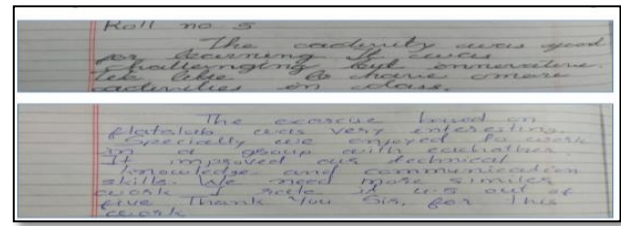 Roll no. 5
The activity was good
for learning. It was
challenging but innovative.
I'd like to have more
activities in class.
The exercise based on
flatslab was very interesting.
Specially we enjoyed to work
in a group with eachother.
It improved our technical
knowledge and communication
skills. We need more similer
work I rate it 4.5 out of
five Thank you Sir, for this
work